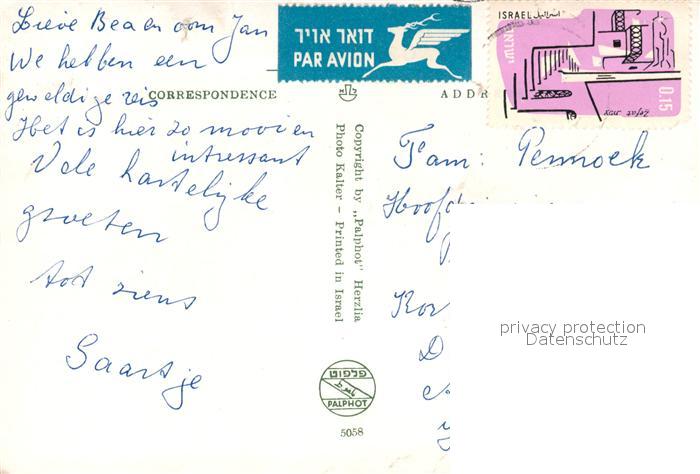 Lieve Bea en oom Jan
We hebben een
geweldige reis
Het is hier zo mooi en
intressant
Vele hartelijke
groeten
tot ziens
Saartje
דואר אויר
PAR AVION
CORRESPONDENCE
ADDR
ISRAEL اسرائيل
ישראל
0.15
Zefat צפת
Fam: Pennock
Hoofd
Kor
D
Copyright by „Palphot" Herzlia
Photo Kalter – Printed in Israel
פלפוט
PALPHOT
5058
privacy protection
Datenschutz